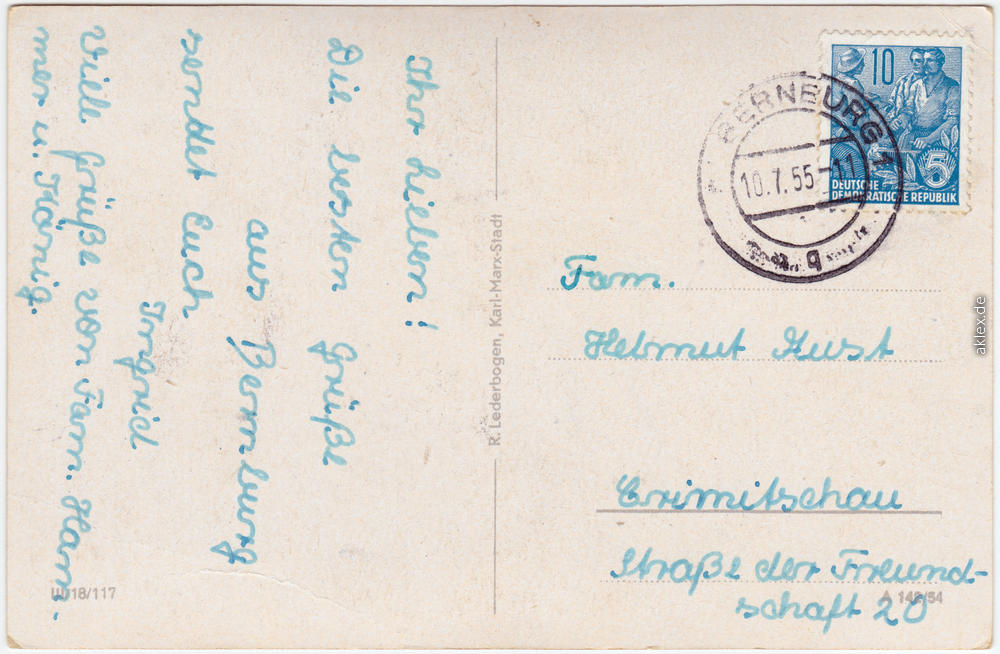 Ihr Lieben!
Die besten Grüße
aus Bernburg
sendet Euch
Ingrid
Viele Grüße von Fam. Ham-
mer u. König.
R. Lederbogen, Karl-Marx-Stadt
III/18/117
10
5
DEUTSCHE
DEMOKRATISCHE REPUBLIK
BERNBURG 1
10.7.55-11
q
Fam.
Helmut Kust
Crimitschau
Straße der Freund-
schaft 20
A 148/54
aklex.de